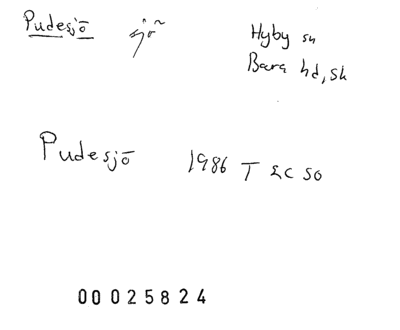 Pudesjö sjö Hyby sn
Bara hd, Sk
Pudesjö 1986 T 2C SO
00025824